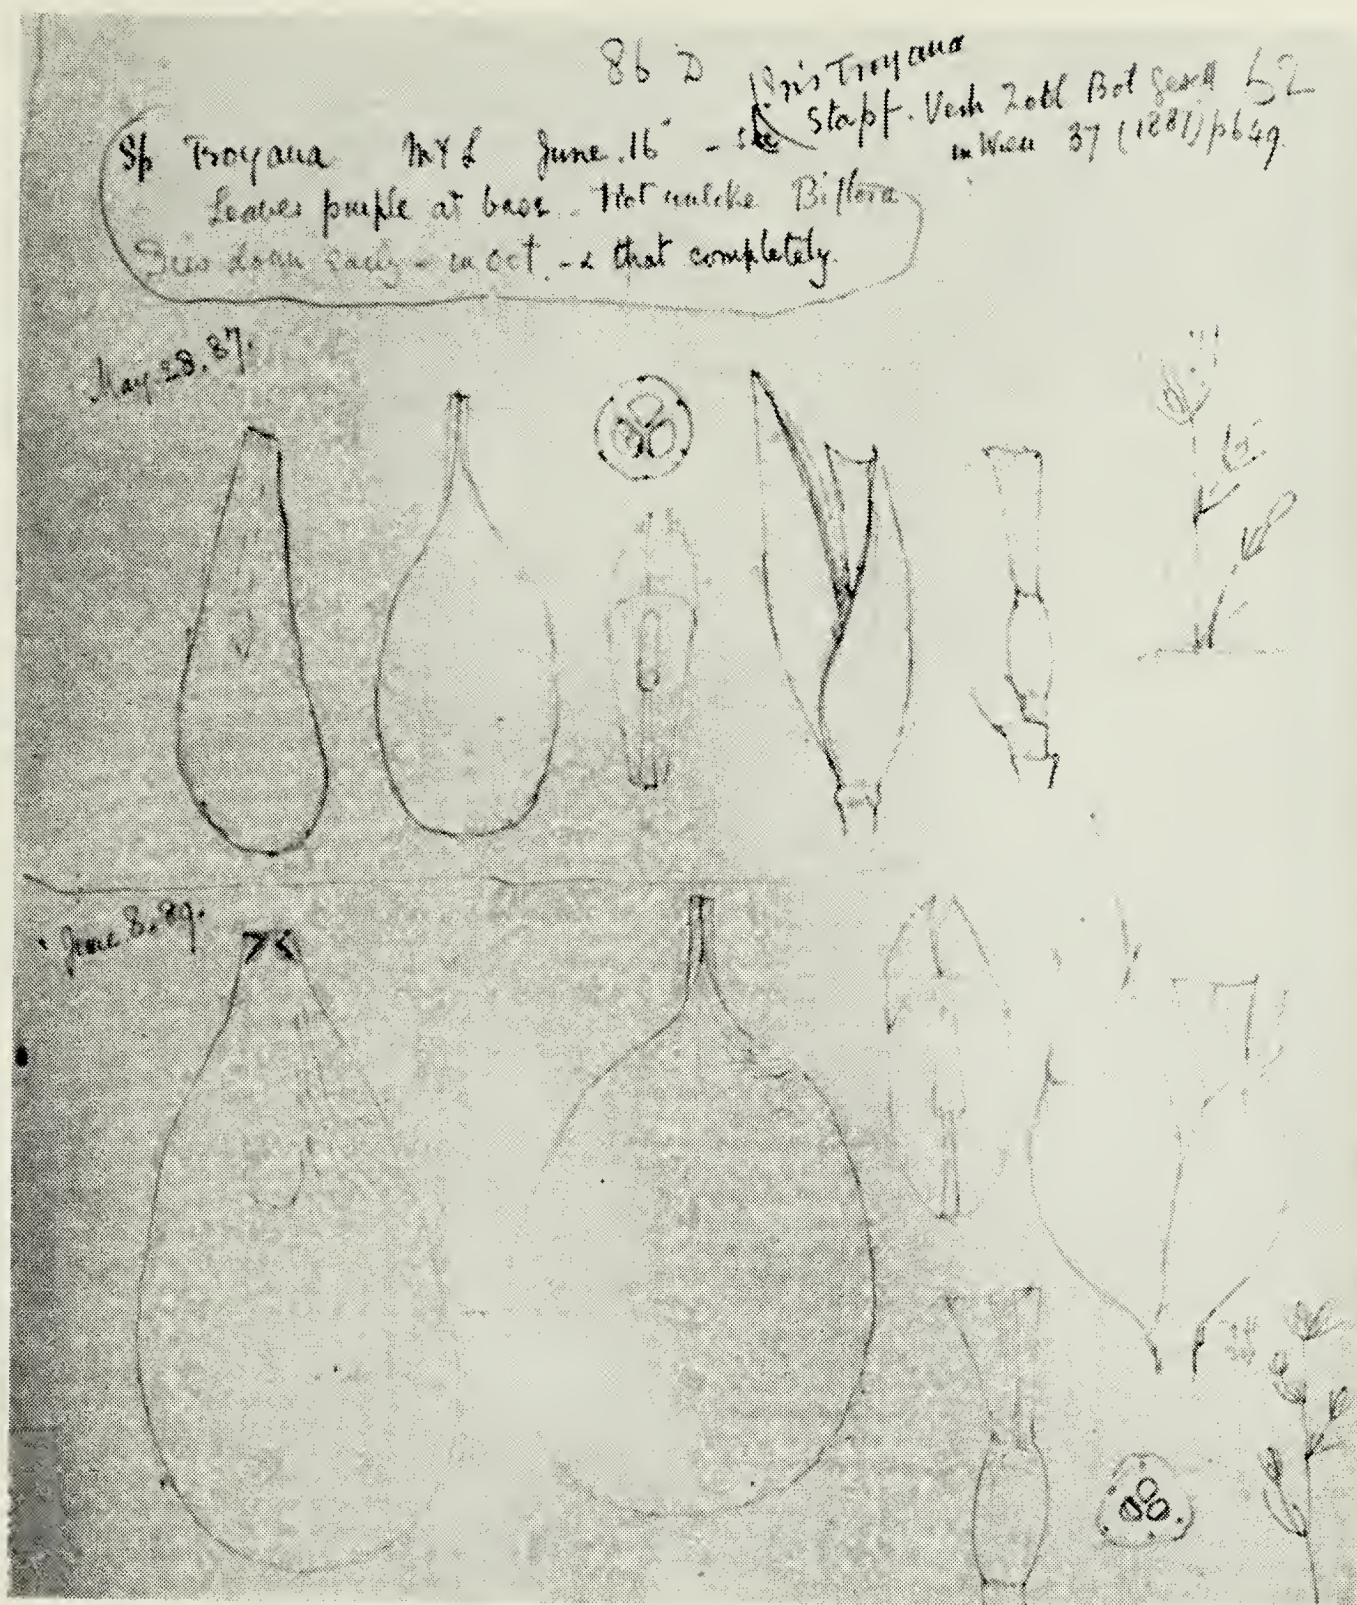 86 D
52
Iris Troyana
Stapf. Verh Zool Bot Gesell
in Wien 37 (1887) p649.
Sp Troyana M & L June.16 - see
Leaves purple at base. Not unlike Biflora
Dies down early - in Oct. - & that completely.
May.28.87.
June.8.89.